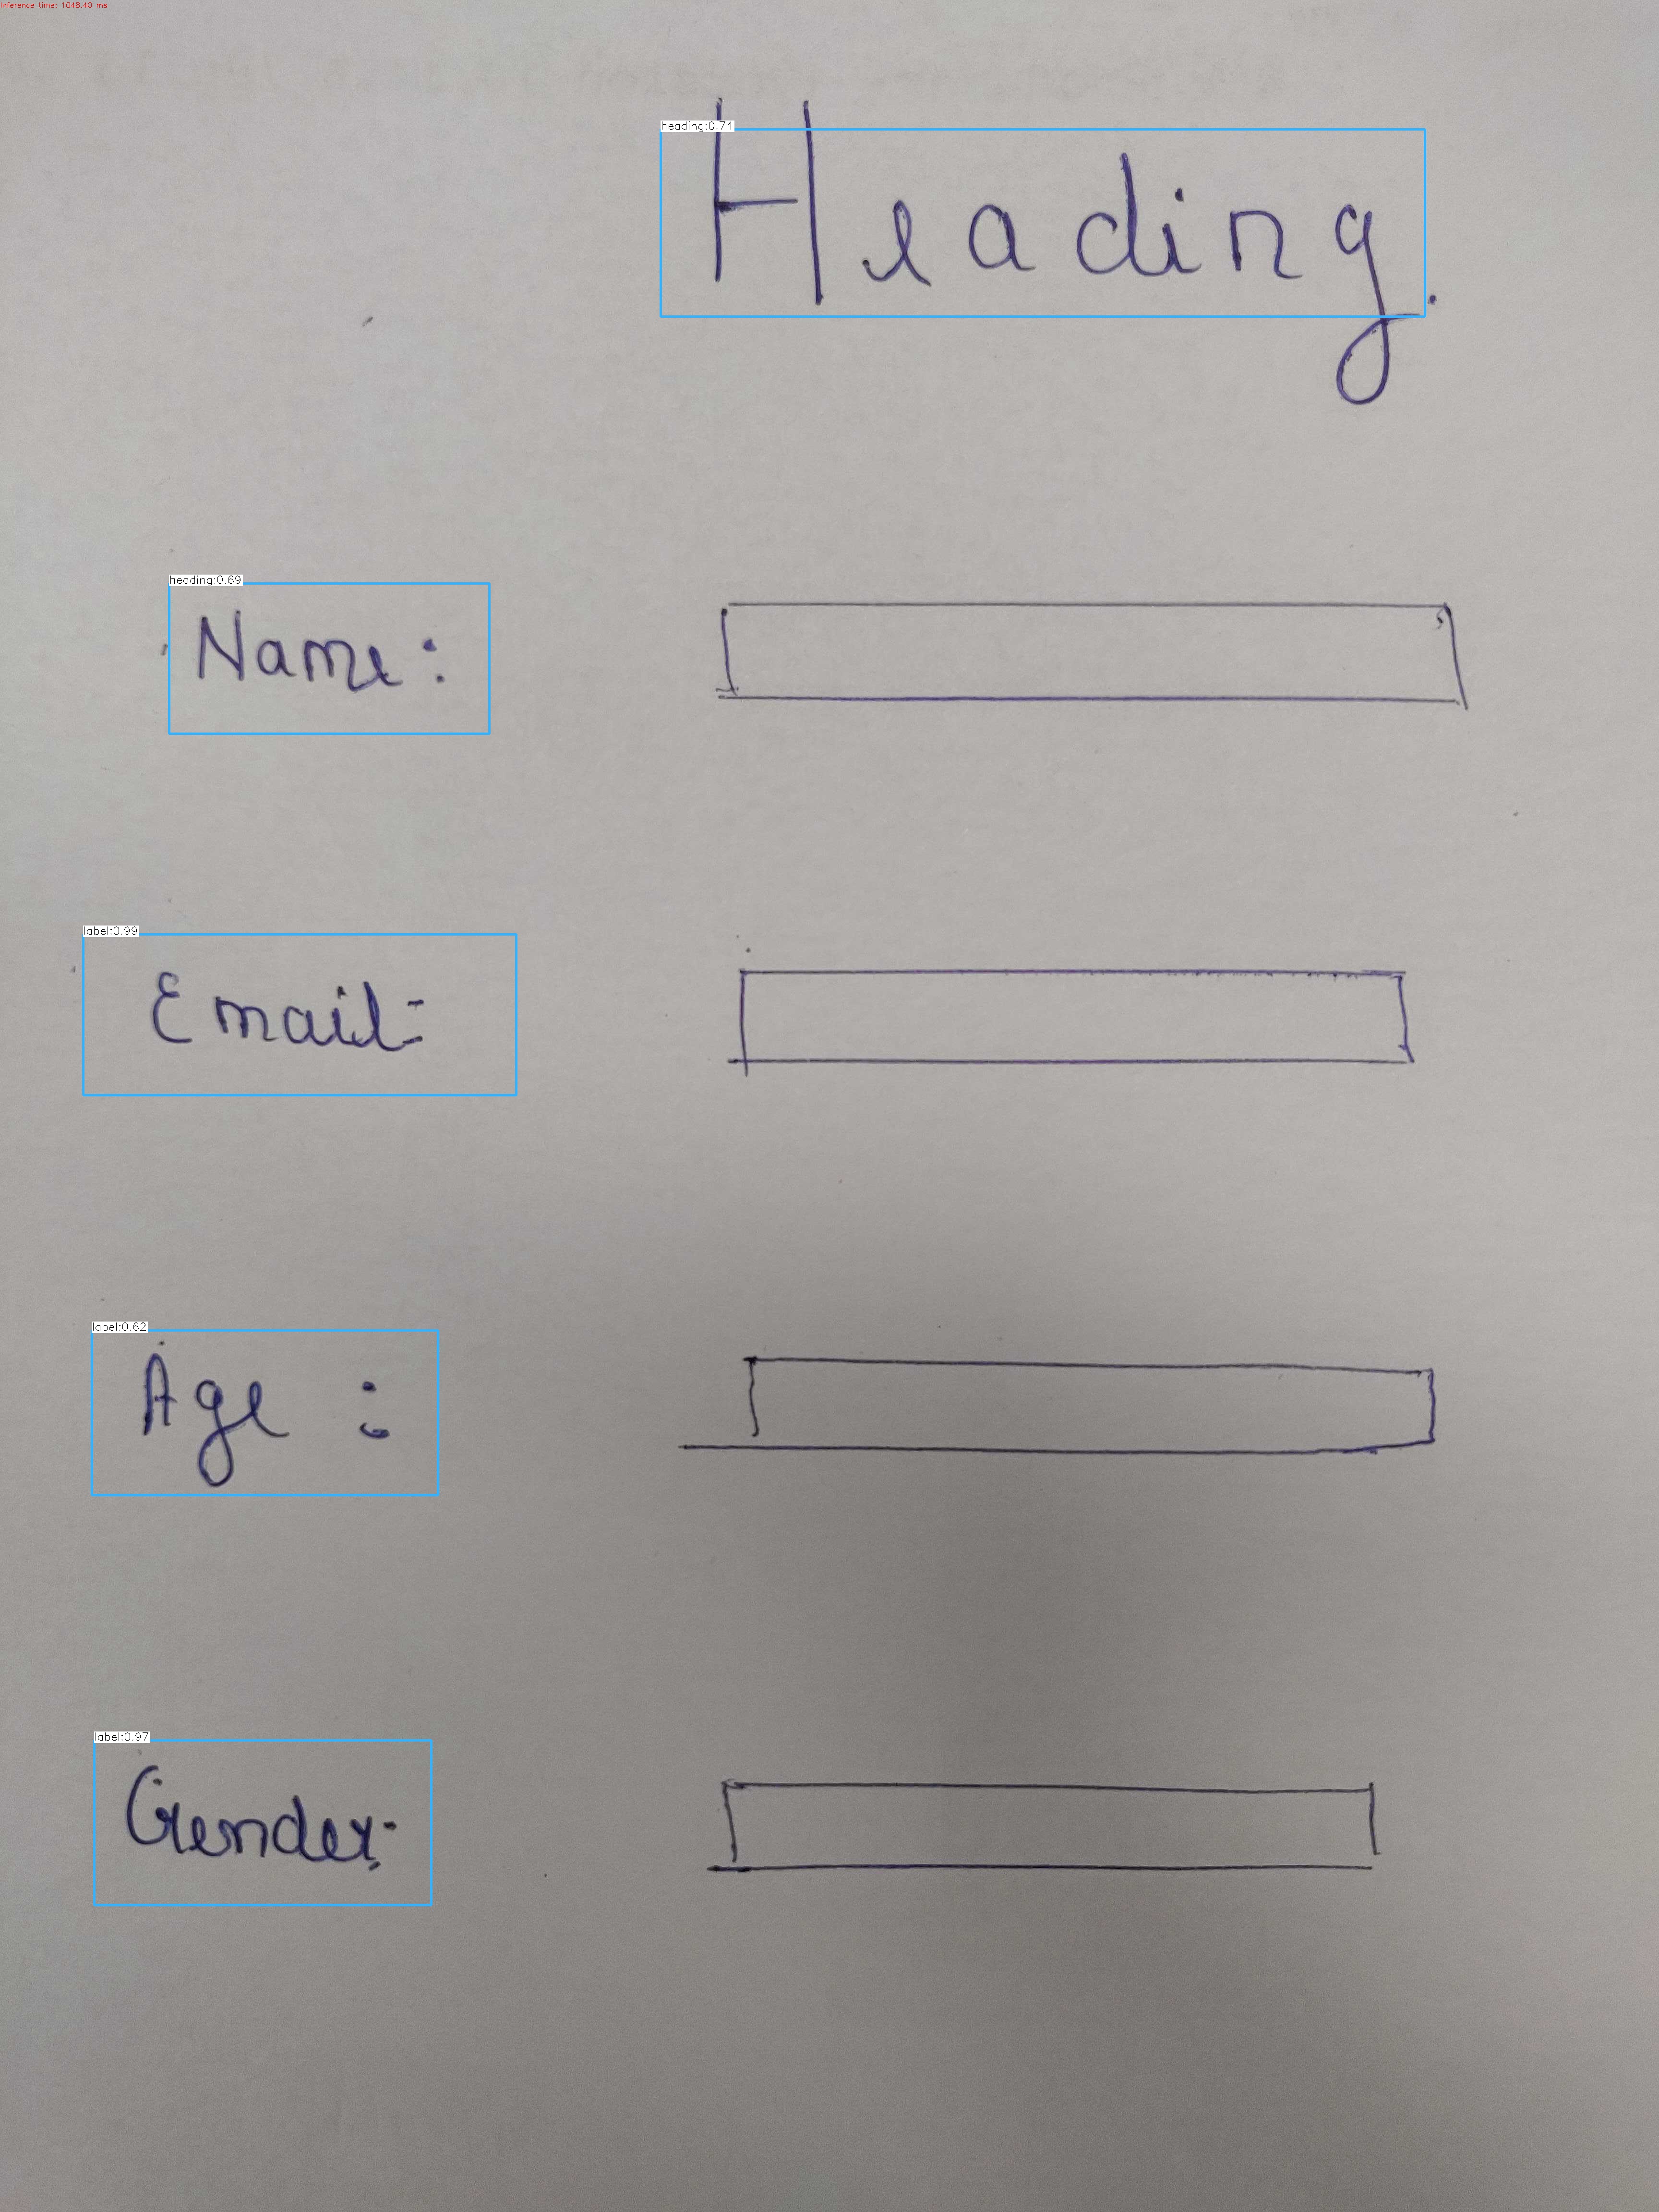 Inference time: 1048.40 ms
heading:0.74
Heading.
heading:0.69
Name:
label:0.99
Email:
label:0.62
Age :
label:0.97
Gender: